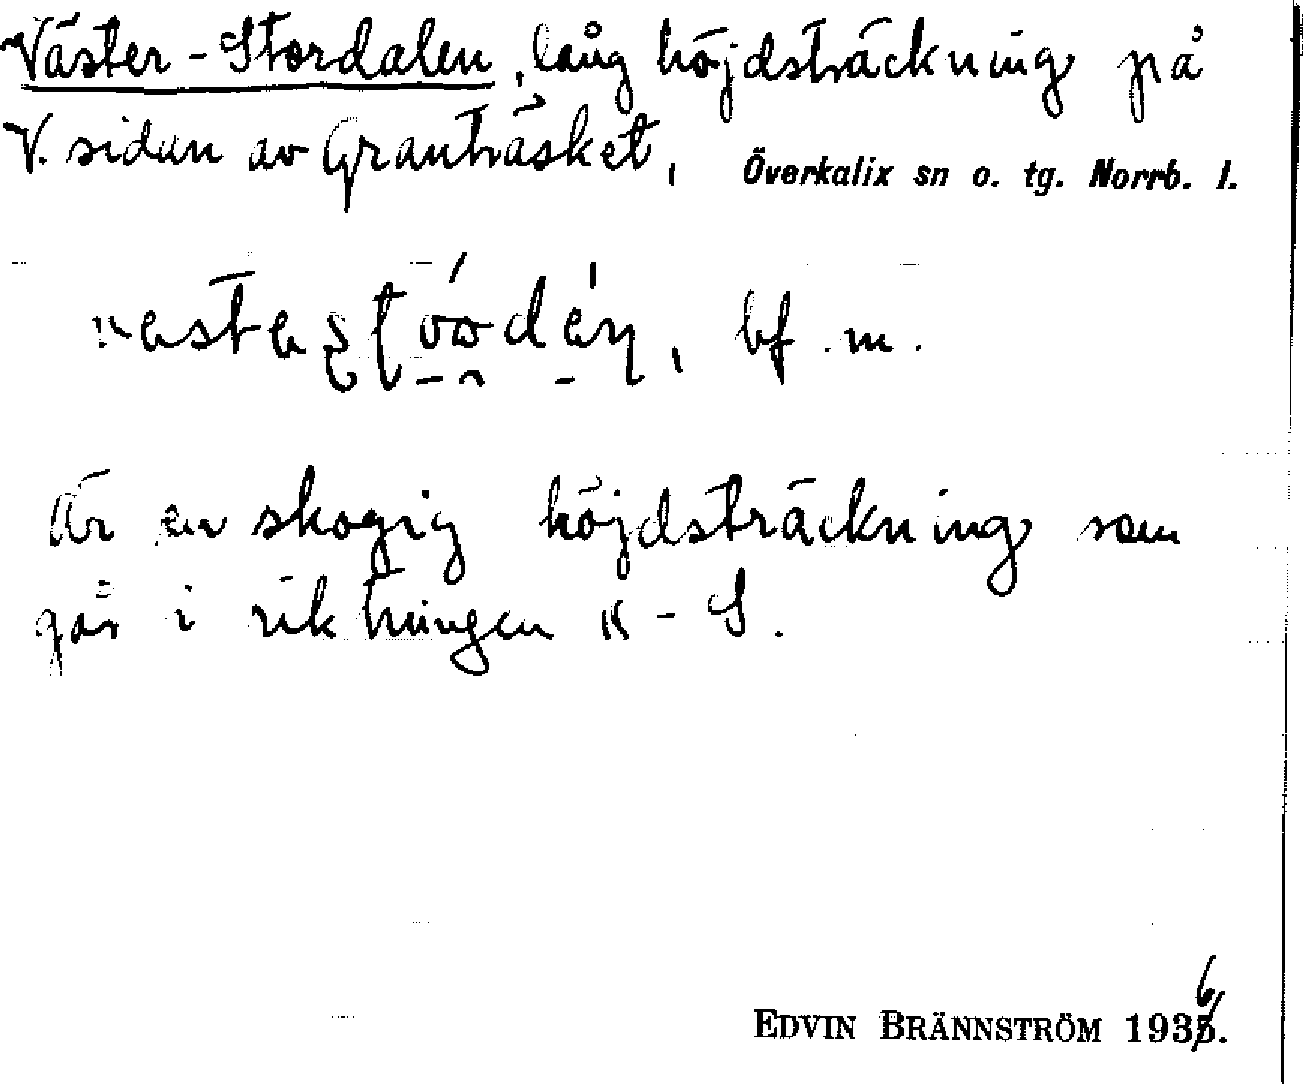 Väster-Stordalen, lång höjdsträckning på
V. sidan av Granträsket, Överkalix sn o. tg. Norrb. l.
bf. m.
Är en skogig höjdsträckning som
går i riktningen N - S.
EDVIN BRÄNNSTRÖM 1936.